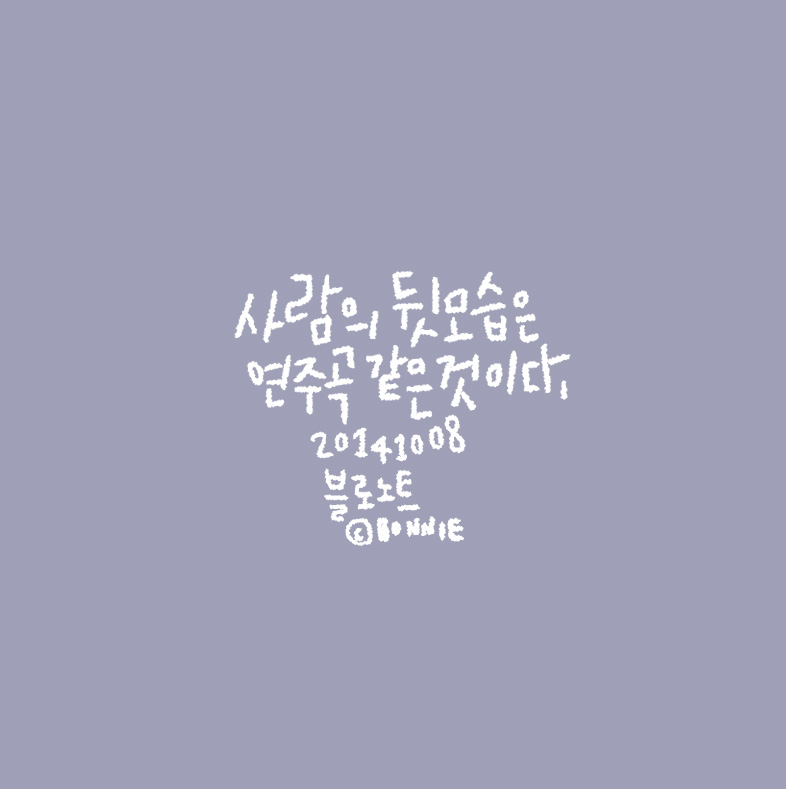 사람의 뒷모습은
연주곡 같은 것이다.
20141008
블로노트
©BONNIE